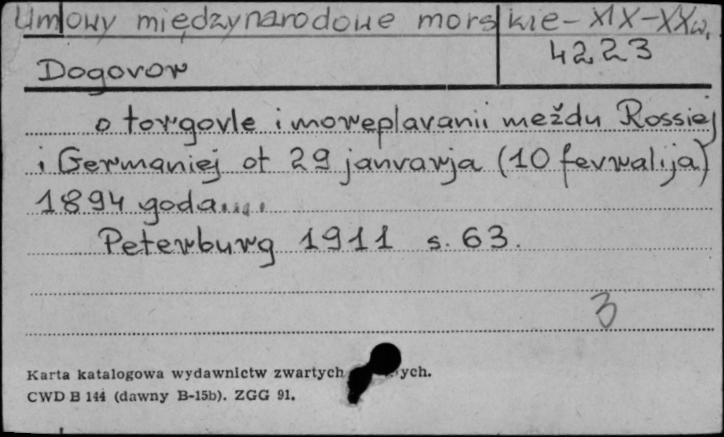 Umowy międzynarodowe morskie - XIX-XXw.
4223
Dogovor
o torgovle i moreplavanii meždu Rossiej
i Germaniej ot 29 janvarja (10 fevralija)
1894 goda....
Peterburg 1911 s. 63.
3
Karta katalogowa wydawnictw zwartych ych.
CWD B 144 (dawny B-15b). ZGG 91.